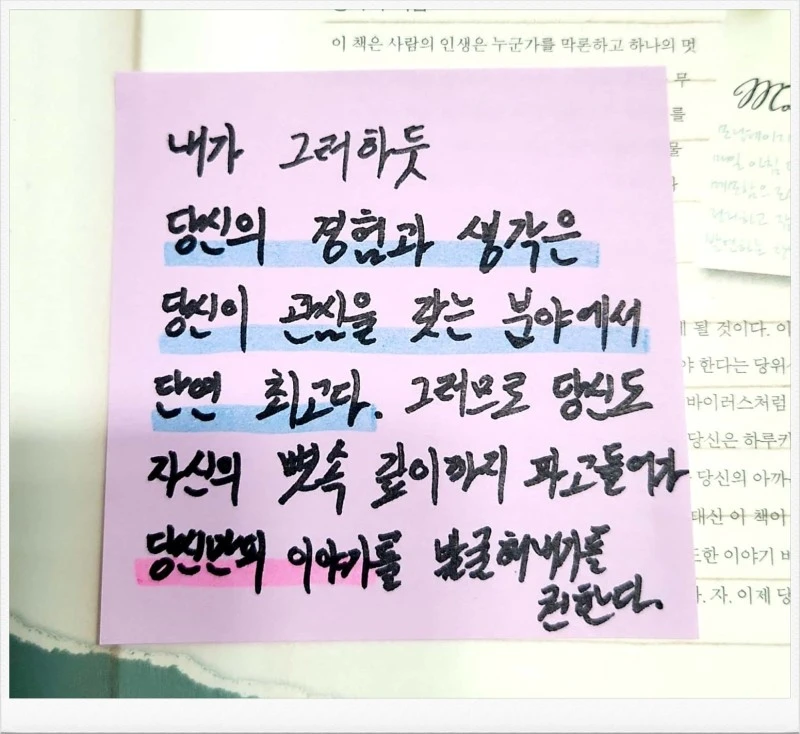 이 책은 사람의 인생은 누군가를 막론하고 하나의 멋
무
를
물
내가 그러하듯
당신의 경험과 생각은
당신이 관심을 갖는 분야에서
단연 최고다. 그러므로 당신도
자신의 뼛속 깊이까지 파고들어가
당신만의 이야기를 발굴해내기를
권한다.
모닝페이지
매일 아침
될 것이다. 이
야 한다는 당위
바이러스처럼
당신은 하루키
당신의 아까
대신 이 책이
또한 이야기
. 자. 이제 당